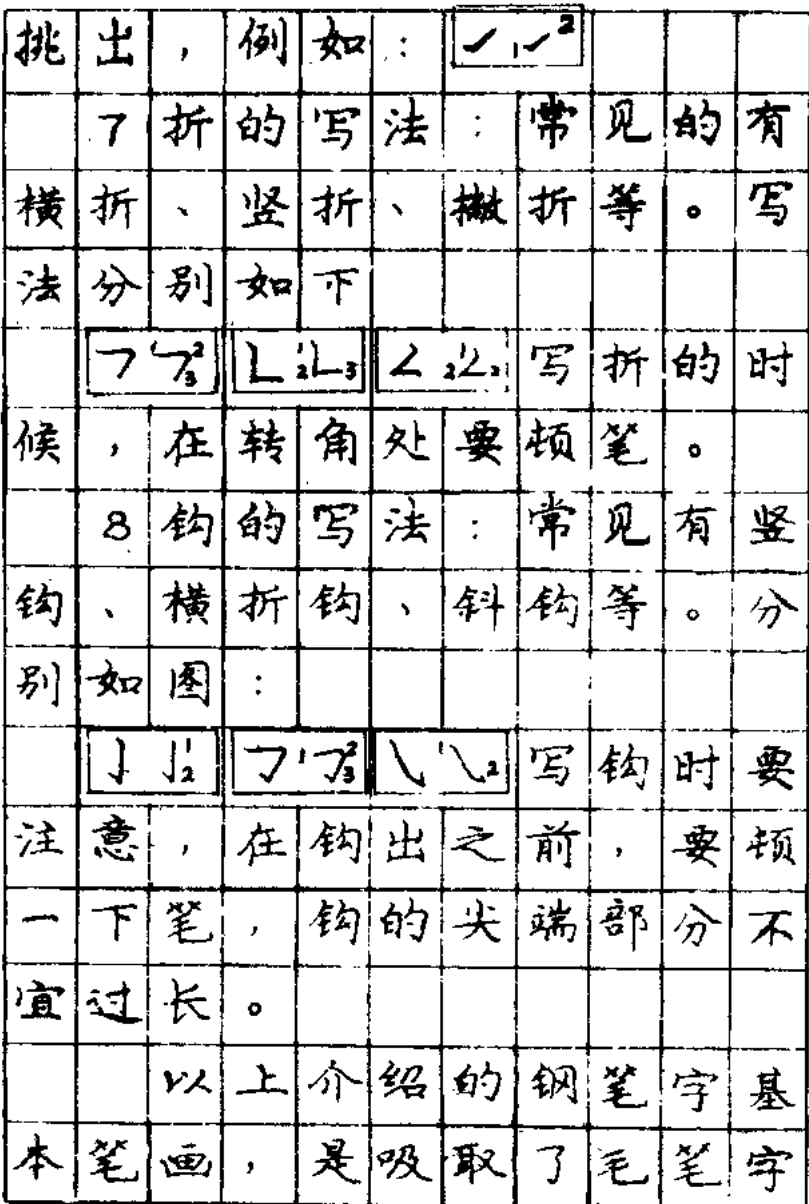 挑出，例如：
7折的写法：常见的有
横折、竖折、撇折等。写
法分别如下
写折的时
候，在转角处要顿笔。
8钩的写法：常见有竖
钩、横折钩、斜钩等。分
别如图：
写钩时要
注意，在钩出之前，要顿
一下笔，钩的尖端部分不
宜过长。
以上介绍的钢笔字基
本笔画，是吸取了毛笔字